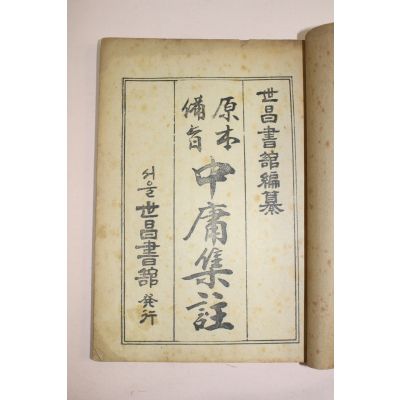 世昌書館編纂
原本
備旨
中庸集註
서울 世昌書館 発行